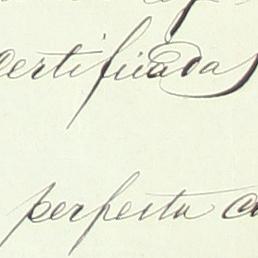 certificadas
perfecta